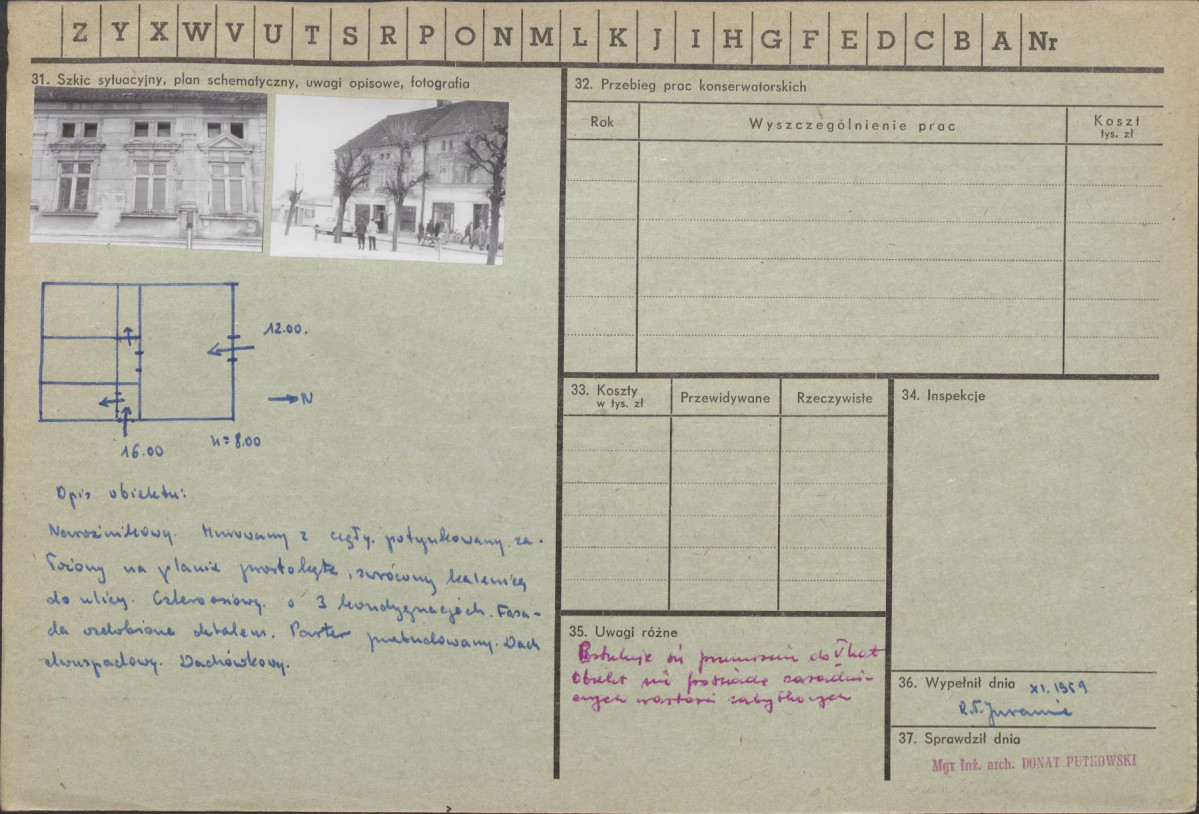 Z Y X W V U T S R P O N M L K J I H G F E D C B A Nr
31. Szkic sytuacyjny, plan schematyczny, uwagi opisowe, fotografia
12.00.
N
16.00
h = 8.00
Opis obiektu:
Narożnikowy. Murowany z cegły, potynkowany. za-
łożony na planie prostokąta, zwrócony kalenicą
do ulicy. Czteroosiowy. o 3 kondygnacjach. Fasa-
da ozdobiona detalem. Parter przebudowany. Dach
dwuspadowy. Dachówkowy.
32. Przebieg prac konserwatorskich
Rok
Wyszczególnienie prac
Koszt
tys. zł
33. Koszty
w tys. zł
Przewidywane
Rzeczywiste
34. Inspekcje
35. Uwagi różne
Postuluje się przeniesienie do V kat
Obiekt nie posiada zasadni-
czych wartości zabytkowych
36. Wypełnił dnia XI. 1959
37. Sprawdził dnia
Mgr Inż. arch. DONAT PUTKOWSKI